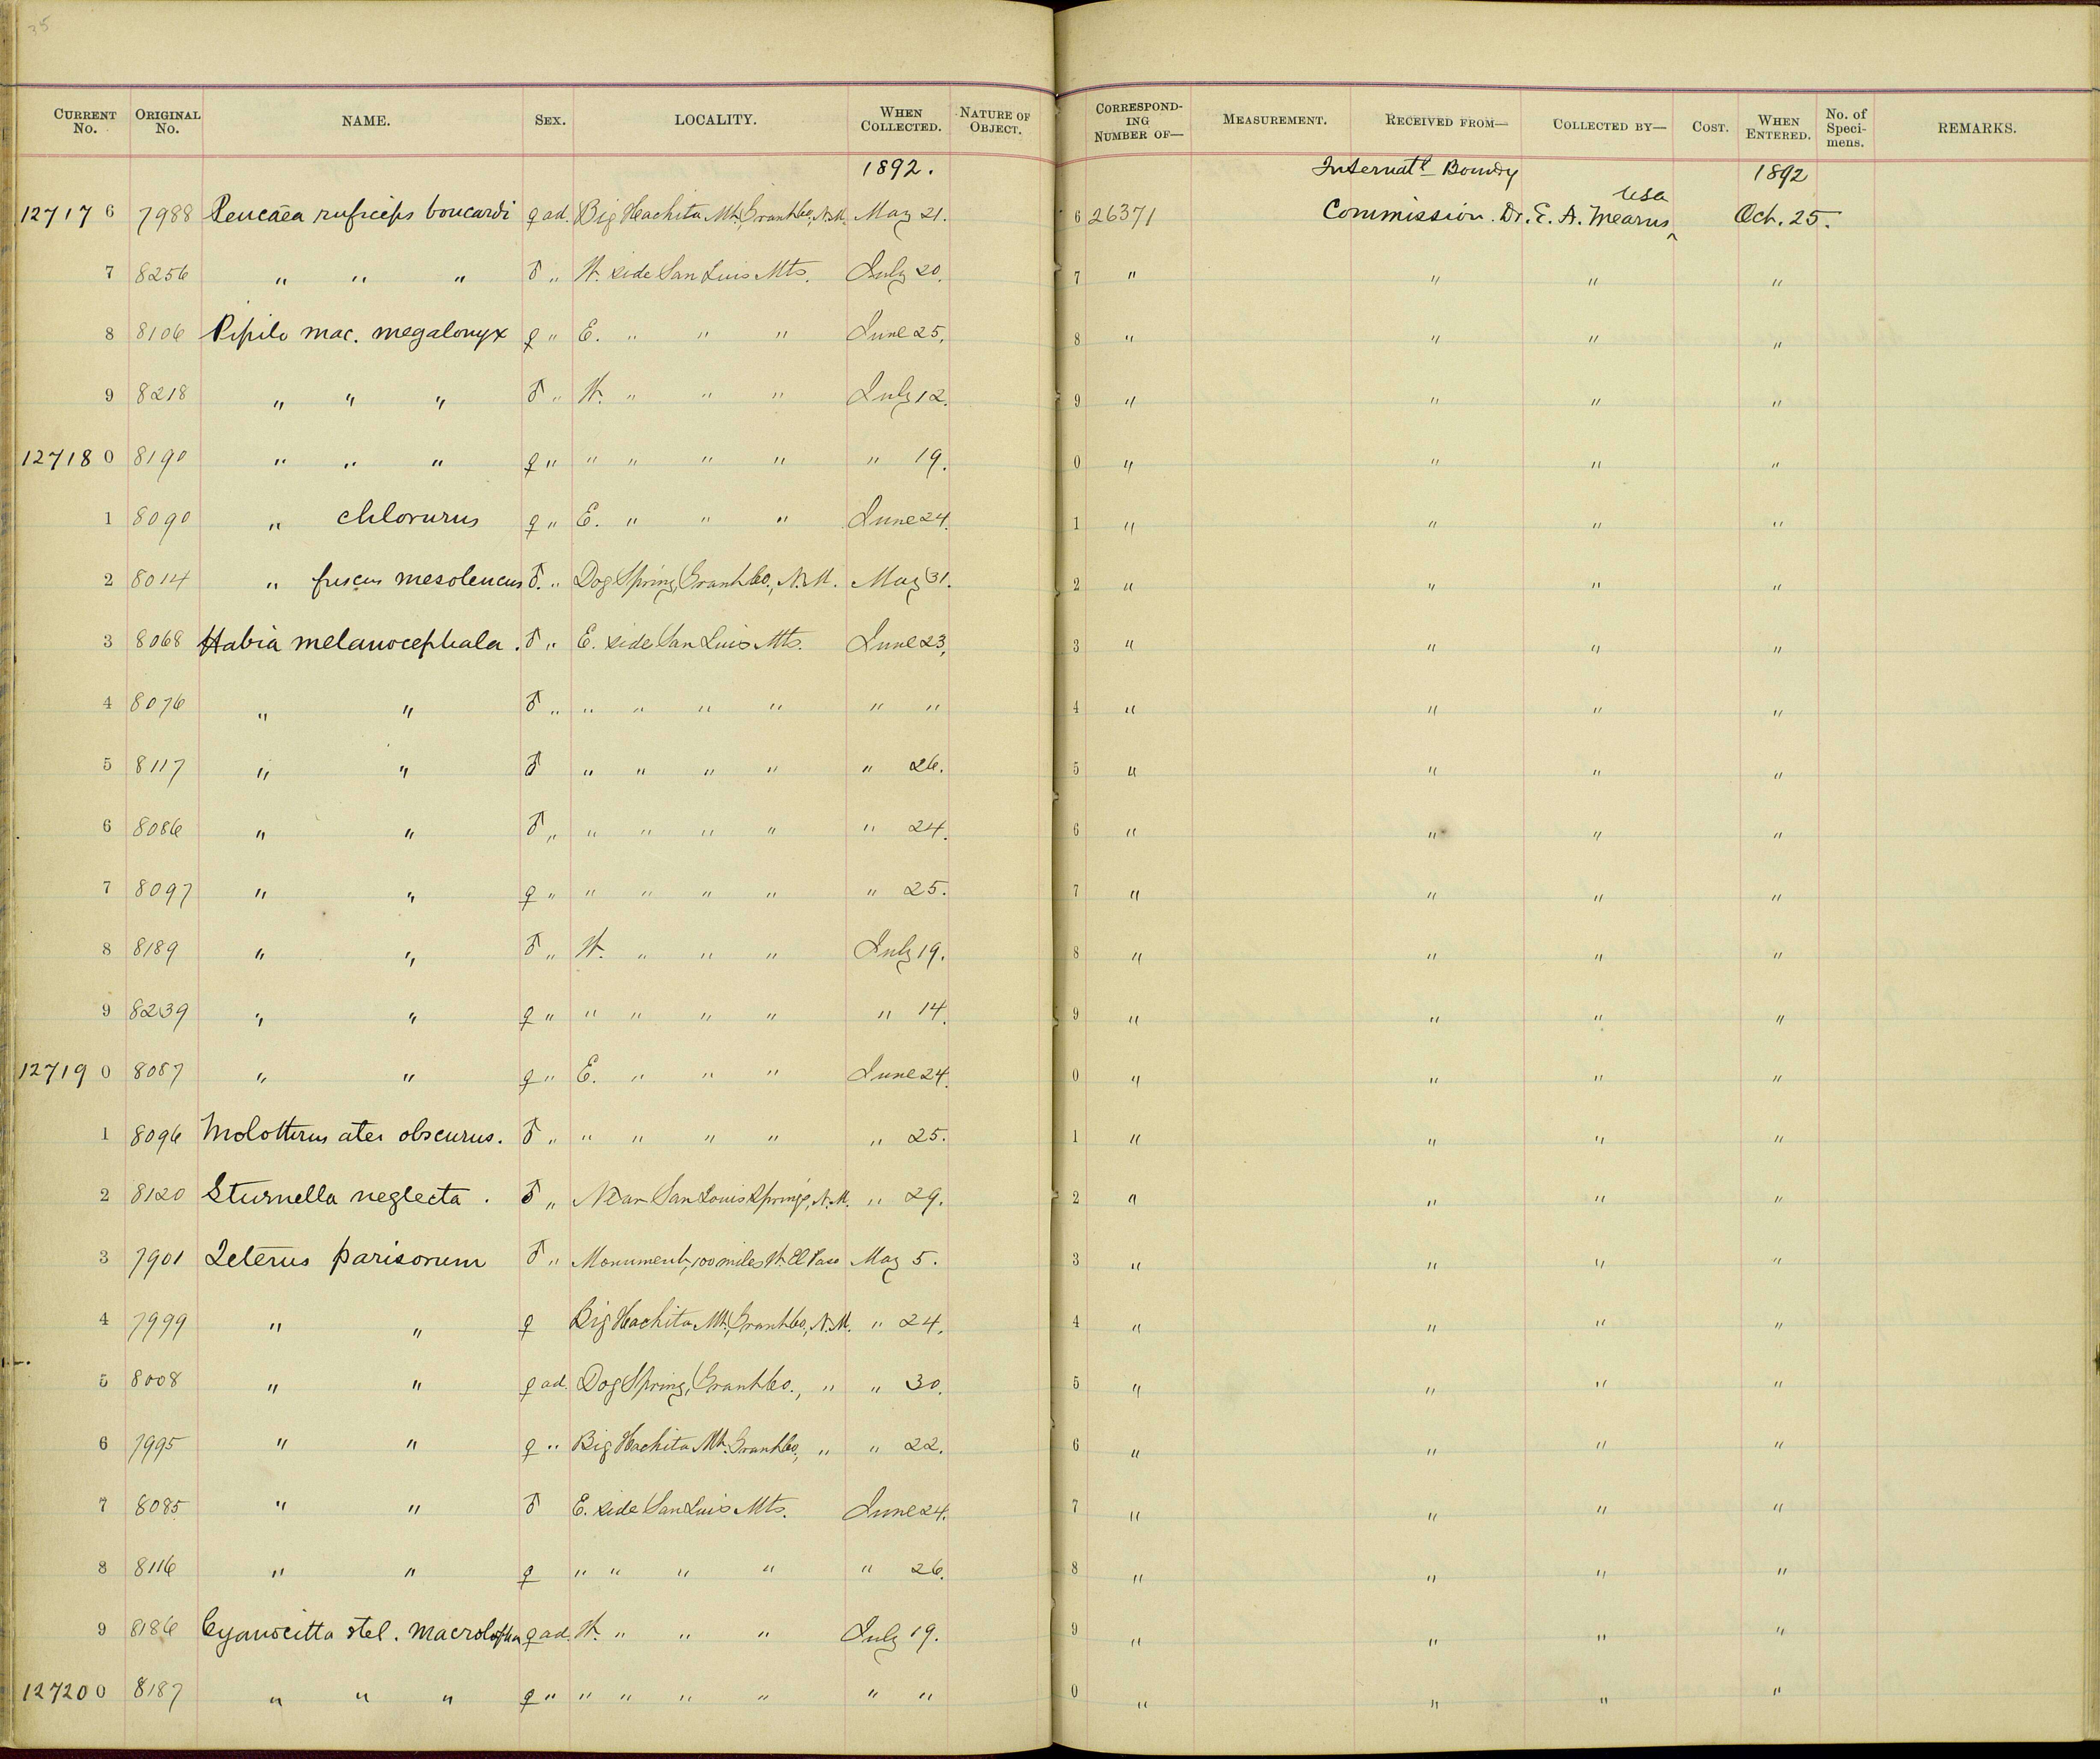 35
CURRENT No. ORIGINAL No. NAME. SEX. LOCALITY. WHEN COLLECTED. NATURE OF OBJECT. CORRESPONDING NUMBER OF— MEASUREMENT. RECEIVED FROM— COLLECTED BY— COST. WHEN ENTERED. No. of Specimens. REMARKS.
1892. Internatl Boundry 1892
127176 7988 Peucaea ruficeps boucardi ♀ ad. Big Hachita Mt., Grant Co., N.M. May 21. 6 26371 Commission. Dr. E. A. Mearns, USA Oct. 25.
7 8256 " " " ♂ " W. side San Luis Mts. July 20. 7 " " " "
8 8106 Pipilo mac. megalonyx ♀ " E. " " " June 25. 8 " " " "
9 8218 " " " ♂ " W. " " " July 12. 9 " " " "
127180 8190 " " " ♀ " " " " " " 19. 0 " " " "
1 8090 " chlorurus ♀ " E. " " " June 24. 1 " " " "
2 8014 " fuscus mesoleucus ♂. " Dog Spring, Grant Co., N.M. May 31. 2 " " " "
3 8068 Habia melanocephala. ♂ " E. side San Luis Mts. June 23, 3 " " " "
4 8076 " " ♂ " " " " " " " 4 " " " "
5 8117 " " ♂ " " " " " 26. 5 " " " "
6 8086 " " ♂ " " " " " " 24. 6 " " " "
7 8097 " " ♀ " " " " " " 25. 7 " " " "
8 8189 " " ♂ " W. " " " July 19. 8 " " " "
9 8239 " " ♀ " " " " " " 14. 9 " " " "
127190 8087 " " ♀ " E. " " " June 24. 0 " " " "
1 8096 Molothrus ater obscurus. ♂ " " " " " " 25. 1 " " " "
2 8120 Sturnella neglecta. ♂ " Near San Louis Springs, N.M. " 29. 2 " " " "
3 7901 Icterus parisorum ♂ " Monument, 100 miles W. El Paso May 5. 3 " " " "
4 7999 " " ♀ Big Hachita Mt., Grant Co., N.M. " 24. 4 " " " "
5 8008 " " ♀ ad. Dog Spring, Grant Co., " " 30. 5 " " " "
6 7995 " " ♀ " Big Hachita Mt. Grant Co., " " 22. 6 " " " "
7 8085 " " ♂ E. side San Luis Mts. June 24. 7 " " " "
8 8116 " " ♀ " " " " " 26. 8 " " " "
9 8186 Cyanocitta stel. macrolopha ♀ ad. W. " " " July 19. 9 " " " "
127200 8187 " " " ♀ " " " " " " " 0 " " " "